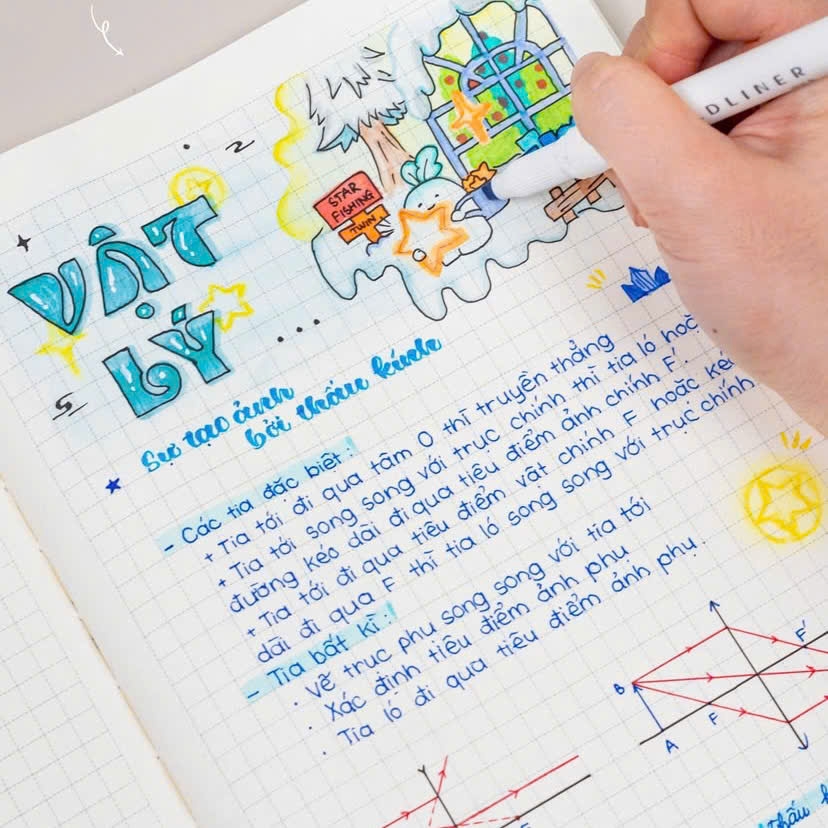 DLINER
STAR
FISHING
TWIN
VẬT
LÝ ...
Sự tạo ảnh
bởi thấu kính
- Các tia đặc biệt:
+ Tia tới đi qua tâm O thì truyền thẳng
+ Tia tới song song với trục chính thì tia ló hoặ
đường kéo dài đi qua tiêu điểm ảnh chính F'.
+ Tia tới đi qua tiêu điểm vật chính F hoặc ké
dài đi qua F thì tia ló song song với trục chính
- Tia bất kì:
· Vẽ trục phụ song song với tia tới
· Xác định tiêu điểm ảnh phụ
· Tia ló đi qua tiêu điểm ảnh phụ.
B
A
F
F'
thấu k